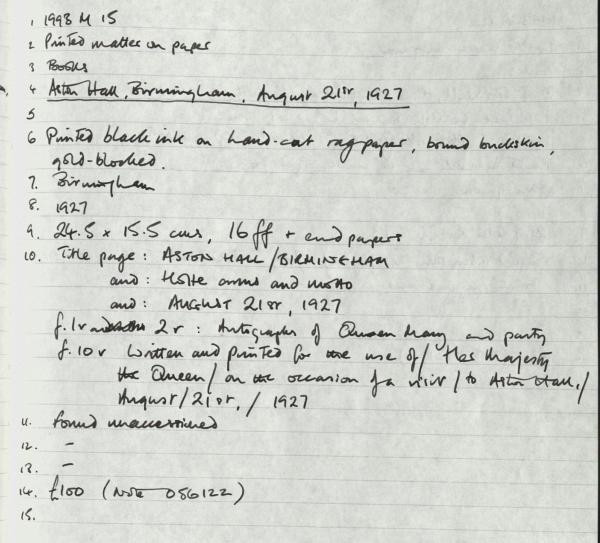 1 1998 M 15
2 Printed matter on paper
3 Books
4 Aston Hall, Birmingham, August 21st, 1927
5
6 Printed black ink on hand-cut rag paper, bound buckskin,
gold-blocked.
7. Birmingham
8. 1927
9. 24.5 x 15.5 cms, 16 ff + end papers
10. Title page: ASTON HALL/BIRMINGHAM
and: Holte arms and motto
and: AUGUST 21ST, 1927
f.1v 2r: Autographs of Queen Mary and party
f.10v Written and printed for the use of/ Her Majesty
the Queen/ on the occasion of a visit/ to Aston Hall,/
August/ 21st,/ 1927
11. Found unaccessioned
12. -
13. -
14. £100 (Note 056122)
15.